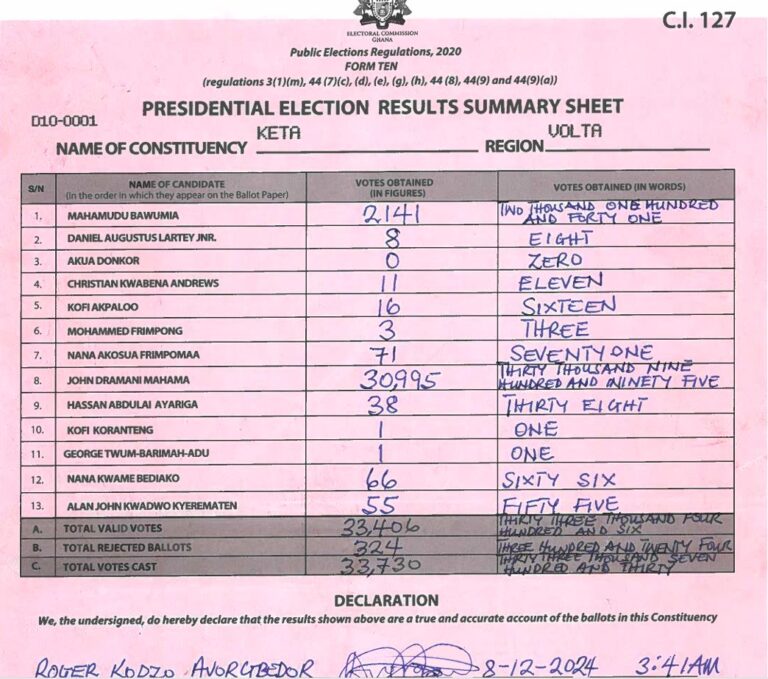 C.I. 127
ELECTORAL COMMISSION
GHANA
Public Elections Regulations, 2020
FORM TEN
(regulations 3(1)(m), 44 (7)(c), (d), (e), (g), (h), 44 (8), 44(9) and 44(9)(a))
D10-0001
PRESIDENTIAL ELECTION RESULTS SUMMARY SHEET
NAME OF CONSTITUENCY KETA REGION VOLTA
S/N NAME OF CANDIDATE (in the order in which they appear on the Ballot Paper) VOTES OBTAINED (IN FIGURES) VOTES OBTAINED (IN WORDS)
1. MAHAMUDU BAWUMIA 2141 TWO THOUSAND ONE HUNDRED AND FORTY ONE
2. DANIEL AUGUSTUS LARTEY JNR. 8 EIGHT
3. AKUA DONKOR 0 ZERO
4. CHRISTIAN KWABENA ANDREWS 11 ELEVEN
5. KOFI AKPALOO 16 SIXTEEN
6. MOHAMMED FRIMPONG 3 THREE
7. NANA AKOSUA FRIMPOMAA 71 SEVENTY ONE
8. JOHN DRAMANI MAHAMA 30,995 THIRTY THOUSAND NINE HUNDRED AND NINETY FIVE
9. HASSAN ABDULAI AYARIGA 38 THIRTY EIGHT
10. KOFI KORANTENG 1 ONE
11. GEORGE TWUM-BARIMAH-ADU 1 ONE
12. NANA KWAME BEDIAKO 66 SIXTY SIX
13. ALAN JOHN KWADWO KYEREMATEN 55 FIFTY FIVE
A. TOTAL VALID VOTES 33,406 THIRTY THREE THOUSAND FOUR HUNDRED AND SIX
B. TOTAL REJECTED BALLOTS 324 THREE HUNDRED AND TWENTY FOUR
C. TOTAL VOTES CAST 33,730 THIRTY THREE THOUSAND SEVEN HUNDRED AND THIRTY
DECLARATION
We, the undersigned, do hereby declare that the results shown above are a true and accurate account of the ballots in this Constituency
ROGER KODZO AVORGBEDOR 8-12-2024 3:41AM